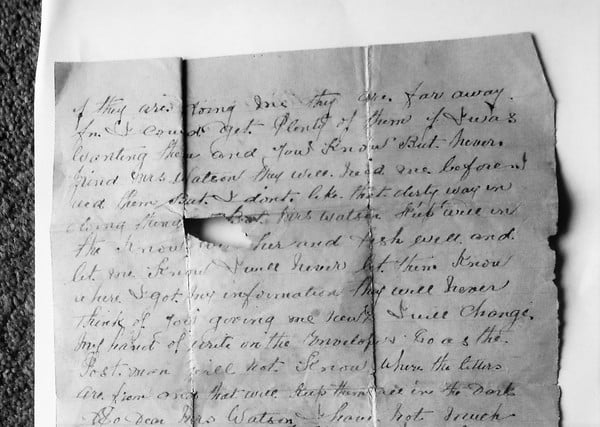 if they are doing me they are far away.
for I could get Plenty of them if I was
Wanting them and You Know But Never
mind Mrs Watson they will need me before I
need them But I dont like that dirty way in
doing things Mrs Watson Keep well in
the Know her and fish well and
let me Know I will Never let them Know
where I got my information they will Never
think of You giving me news I will Change
my hand of write on the Envelopes So as the
Postman will not Know where the letters
are from and that will Keep them all in the Dark
So Dear Mrs Watson I have Not Much